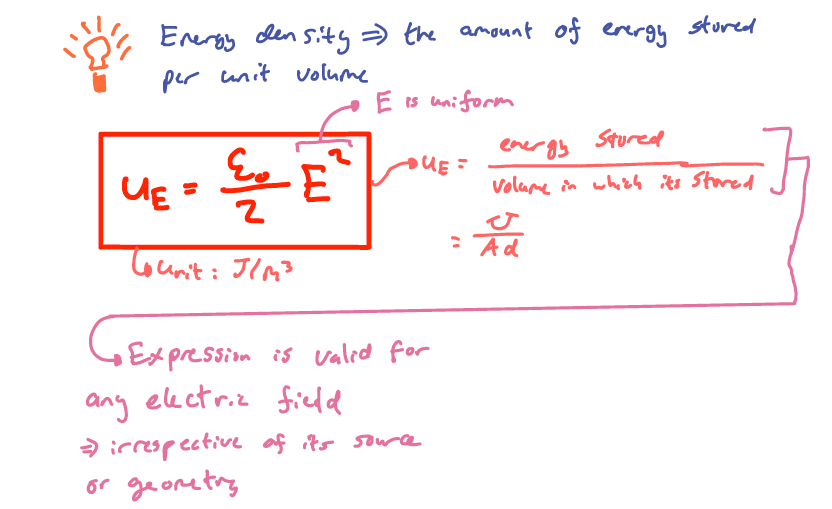 Energy density ⇒ the amount of energy stored
per unit volume
E is uniform
u_E = ε₀/2 E²
u_E = energy stored / volume in which its stored
= U / Ad
unit: J/m³
Expression is valid for
any electric field
⇒ irrespective of its source
or geometry